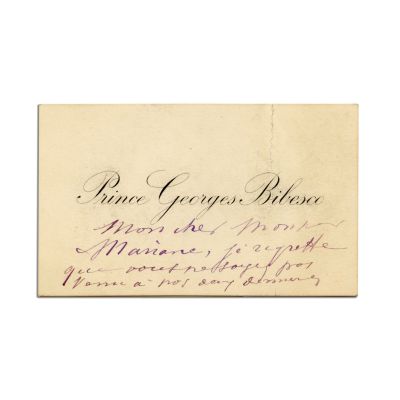 Prince Georges Bibesco
Mon cher Mon
Mariane, je regrette
que vous ne soyez pas
venu à nos deux